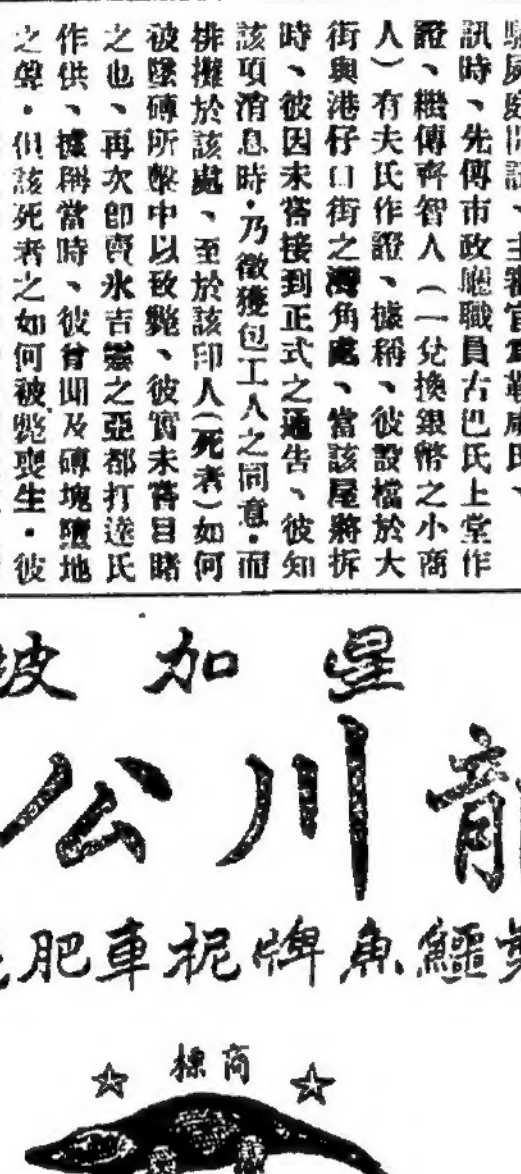 訊時、先傳市政廳職員古巴氏上堂作
證、繼傳齊智人（一兌換銀幣之小商
人）有夫氏作證、據稱、彼設檔於大
街與港仔口街之灣角處、當該屋將拆
時、彼因未嘗接到正式之通告、彼知
該項消息時・乃徵獲包工人之同意・而
排擁於該處、至於該印人（死者）如何
被墜磚所擊中以致斃、彼實未嘗目睹
之也、再次卽賣氷吉靈之亞都打逹氏
作供、據稱當時、彼曾聞及磚塊墮地
之聲・但該死者之如何被斃喪生・彼
星加坡
龍川公
鱷魚牌扼車肥
商標